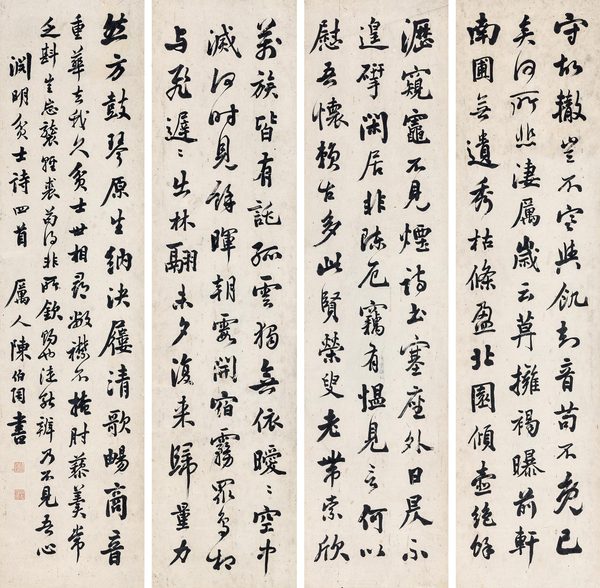 守故轍豈不寒與飢知音苟不存已
矣何所悲淒厲歲云暮擁褐曝前軒
南圃無遺秀枯條盈北園傾壺絕餘
瀝窺竈不見煙詩書塞座外日昃不
遑研閑居非陳厄竊有慍見言何以
慰吾懷賴古多此賢榮叟老帶索欣
萬族皆有託孤雲獨無依曖〻空中
滅何時見餘暉朝霞開宿霧眾鳥相
与飛遲〻出林翮未夕復來歸量力
然方鼓琴原生納決屨清歌暢商音
重華去我久貧士世相尋敝襟不掩肘藜羹常
乏斟豈忘襲輕裘苟得非所欽賜也徒能辨乃不見吾心
淵明貧士詩四首 厲人陳伯陶書